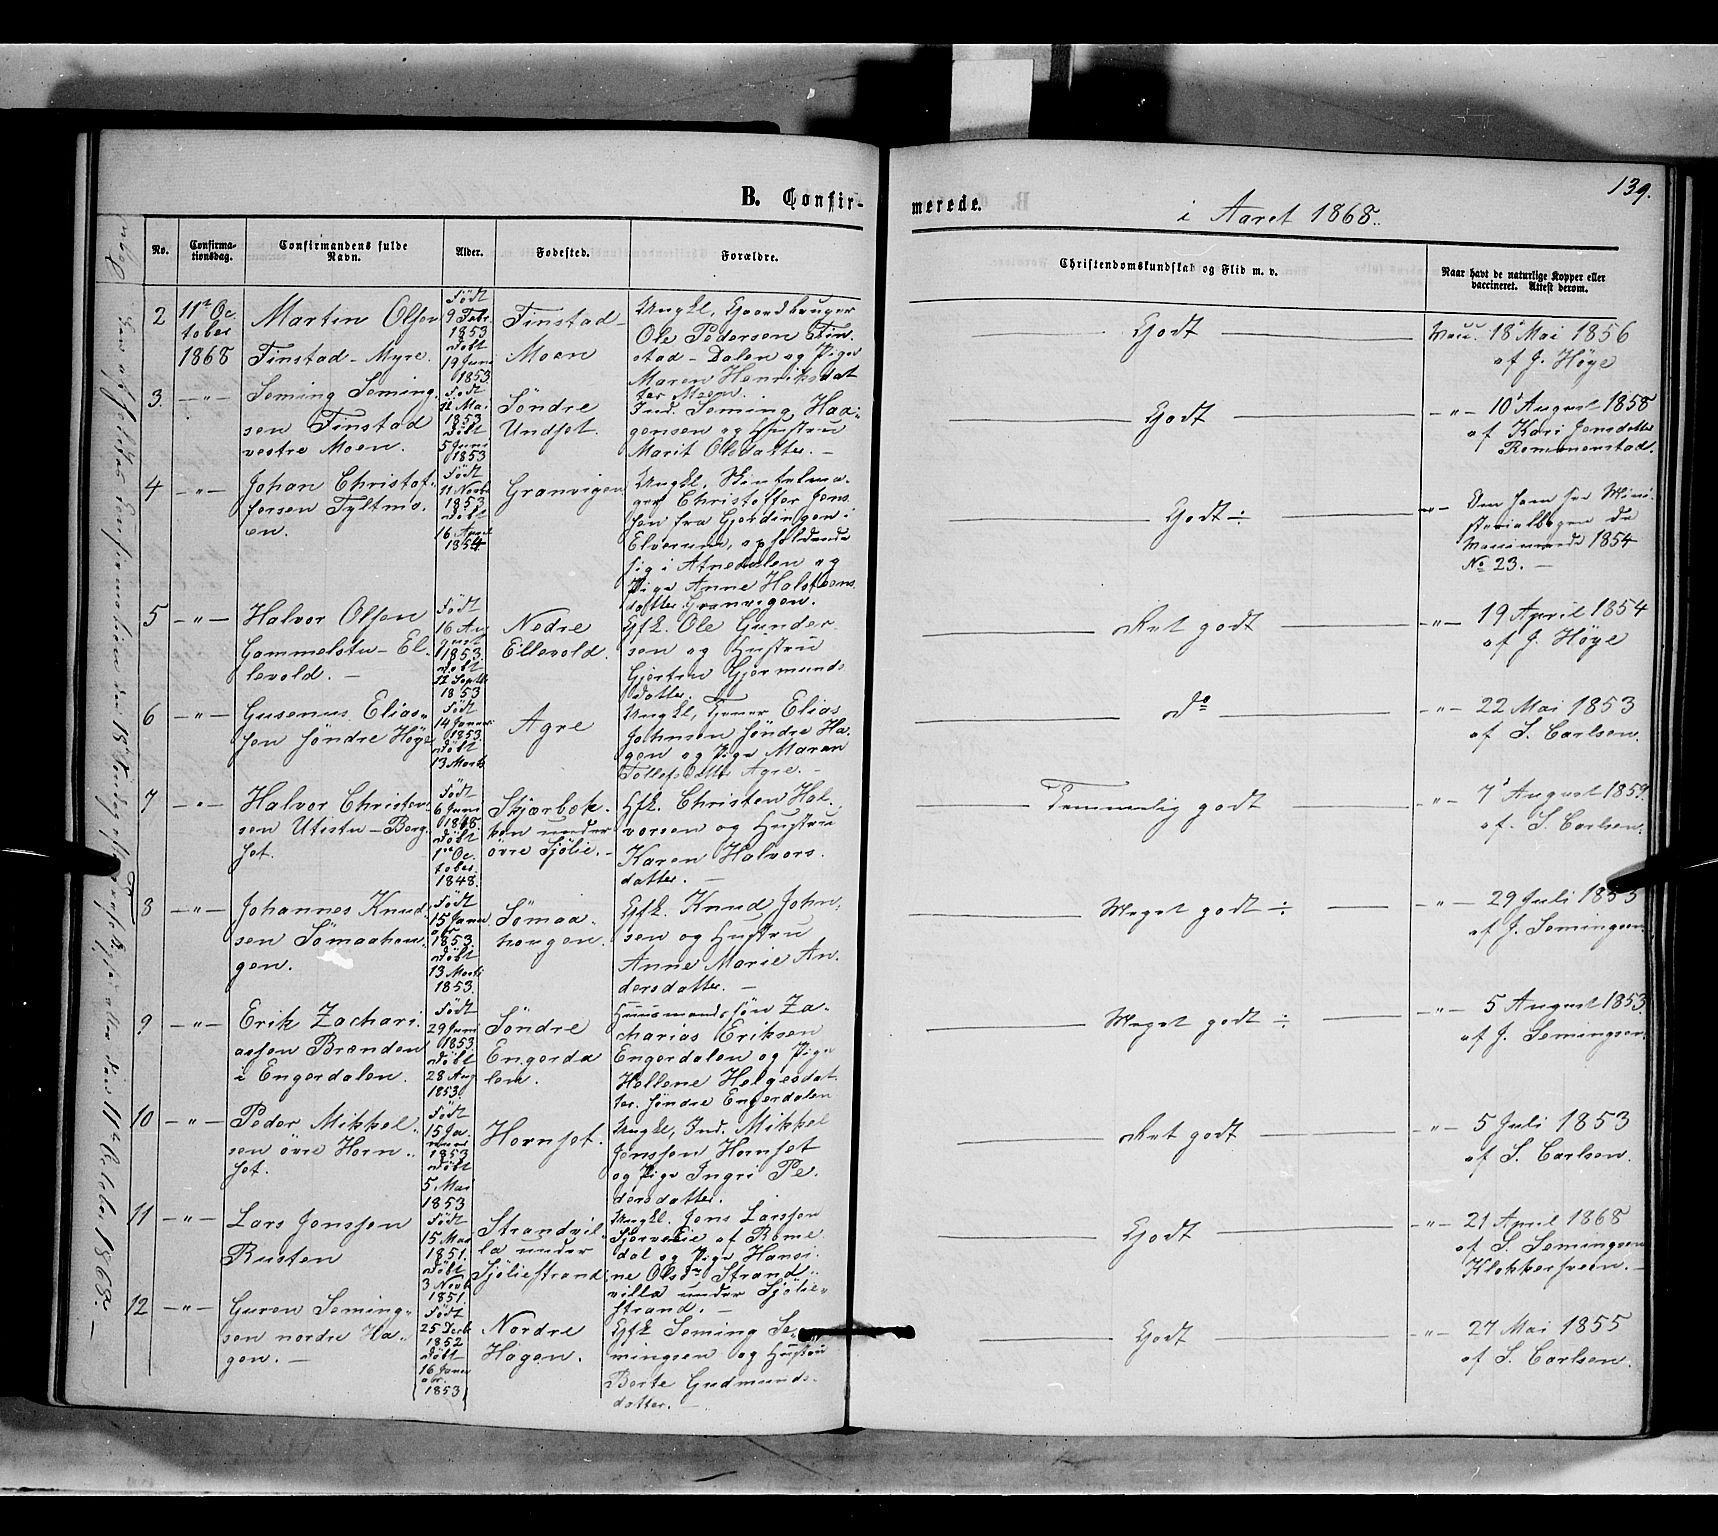 139.
B. Confir-
merede.
i Aaret 1868.
No.
Confirma-
tionsdag.
Confirmandens fulde
Navn.
Alder.
Fødested.
Forældre.
Christendomskundskab og Flid m. v.
Naar havt de naturlige Kopper eller
vaccineret. Attest derom.
2
11te Oc
tober
1868
Martin Olsen
Finstad-Myre.
Født
9 Febr
1853
Døbt
19 Juni
1853.
Finstad-
Moen
Ungkl, Gaardbruger
Ole Pedersen Fin
stad-Dalen og Pige
Maren Henriksdat
ter Moen.
Godt
Vacc. 18 Mai 1856
af J. Høye
3.
-"-
Seming Seming
sen Finstad
vestre Moen.
Født
12 Mai
1853
Døbt
5 Juni
1853
Søndre
Undset.
Ind. Seming Haa-
gensen og Hustru
Marit Olsdatter. -
Godt
-"- 10 August 1858
af Kari Jonsdatter
Rommenstad.
4
-"-
Johan Christof
fersen Tyltmo
en.
Født
11 Novb
1853
Døbt
16 April
1854
Granvigen
Christoffer Jons
sen fra Gjerdingen i
Elverum, opholdende
sig i Atnedalen og
Pige Anne Halsteens
datter Granvigen.
Godt ÷
-"- Den som før Mini
sterialbogen
1854
No 23. -
5
-"-
Halvor Olsen
Gammelstu-El
levold. -
Født
16 Au
gust
1853
Døbt
12 Septb
1853
Nedre
Ellevold.
Gfk. Ole Gunder
sen og Hustru
Gjertru Gjermunds
datter.
Ret godt
-"- 19 April 1854
af J. Høye
6
-"-
Gusenus Elias-
sen søndre Høye
Født
14 Januar
1853
Døbt
13 Marts
Agre
Ungkl, Elias
Johnsen søndre Ha
gen og Pige Maren
Tollefsdatter Agre. -
do
-"- 22 Mai 1853
af S. Carlsen.
7
-"-
Halvor Christen
sen Utistu-Berg
set.
Født
6 Juni
1848
Døbt
1ste Oc
tober
1848.
Skjærbæk
ken under
øvre Sjølie. -
Gfk. Christen Hal
vorsen og Hustru
Karen Halvors
datter. -
Temmelig godt
-"- 7 August 1859.
af S. Carlsen.
8
-"-
Johannes Knud
sen Sømaahau
gen.
Født
15 Janu
ar
1853.
Døbt
13 Marts
1853.
Sømaa
haugen.
Gfk. Knud John
sen og Hustru
Anne Marie An
dersdatter. -
Meget godt ÷
-"- 29 Juli 1853
af J. Semingsen
9
-"-
Erik Zachari
assen Brænden
i Engerdalen.
Født
29 Juni
1853.
Døbt
28 Aug
1853.
Søndre
Engerda
len.
Huusmandssøn Za
charias Eriksen
Engerdalen og Pige
Hellene Helgesdat
ter søndre Engerdalen
Meget godt ÷
-"- 5 August 1853.
af J. Semingsen
10
-"-
Peder Mikkel
sen øvre Horn
set.
Født
15 Ja
nuar
1853
Døbt
5 Mai
1853.
Hornset.
Ungkl, Ind. Mikkel
Jonssen Hornset
og Pige Ingri Pe
dersdatter.
Ret godt
-"- 5 Juli 1853
af S. Carlsen.
11
-"-
Lars Jonssen
Rusten
Født
15 Mai
1851.
Døbt
3 Novb
1851
Strandvil
la under
Sjøliestrand
Ungkl. Jons Larssen
af Rome
dal og Pige Hansi
ne Olsdtr Strand
villa under Sjølie-
strand. -
Godt
-"- 21 April 1868
af S. Semingsen
Klokkersveen. -
12
-"-
Guren Seming-
sen nordre Ha
gen. -
Født
25 Decb
1852
Døbt
16 Janu
ar
1853
Nordre
Hagen.
Gfk Seming Se-
mingsen og Hustru
Berte Gudmunds
datter. -
Godt
-"- 27 Mai 1855
af S. Carlsen.